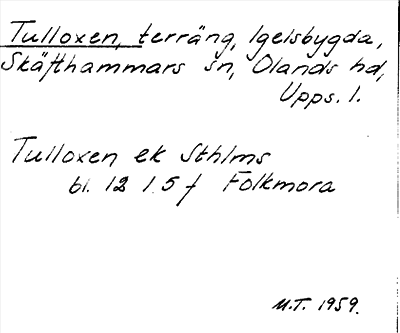 Tulloxen, terräng, Igelsbygda,
Skäfthammars sn, Olands hd,
Upps. l.
Tulloxen ek Sthlms
bl. 12 1.5 f Folkmora
M.T. 1959.